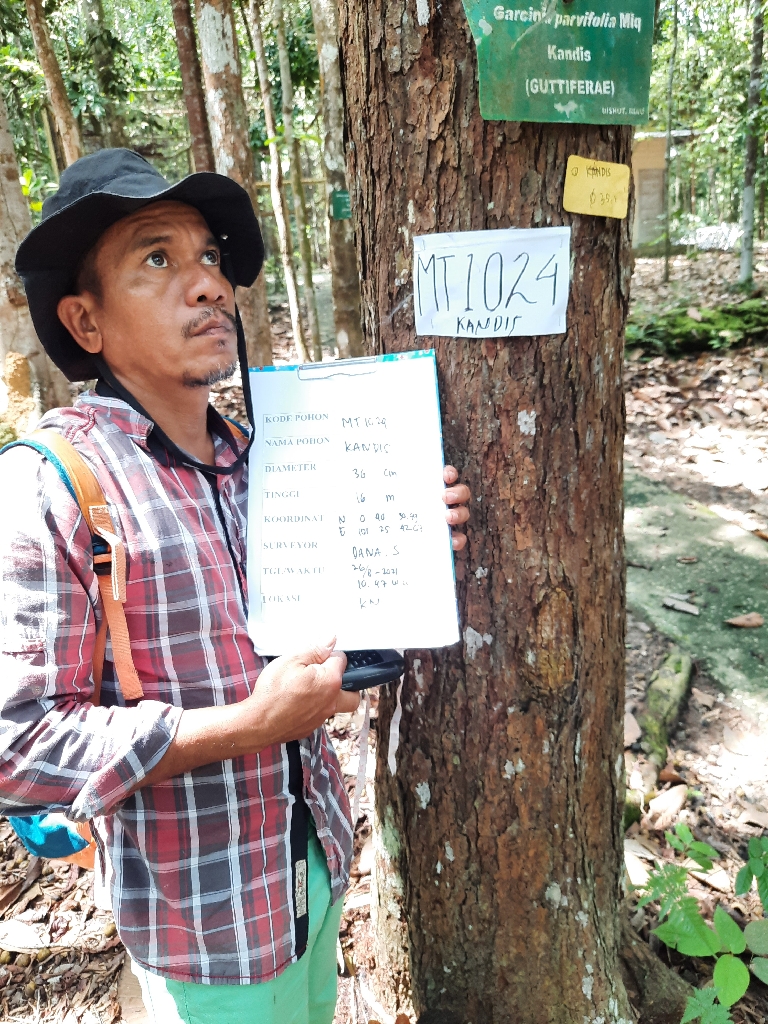 Garcinia parvifolia Miq
Kandis
(GUTTIFERAE)
DISHUT. RIAU
KANDIS
MT1024
KANDIS
KODE POHON MT 1024
NAMA POHON KANDIS
DIAMETER 36 Cm
TINGGI 16 m
KOORDINAT N 0
E 101 25 42.67
SURVEYOR DANA. S
TGL/WAKTU 26/
8-2021
10.47
LOKASI KN